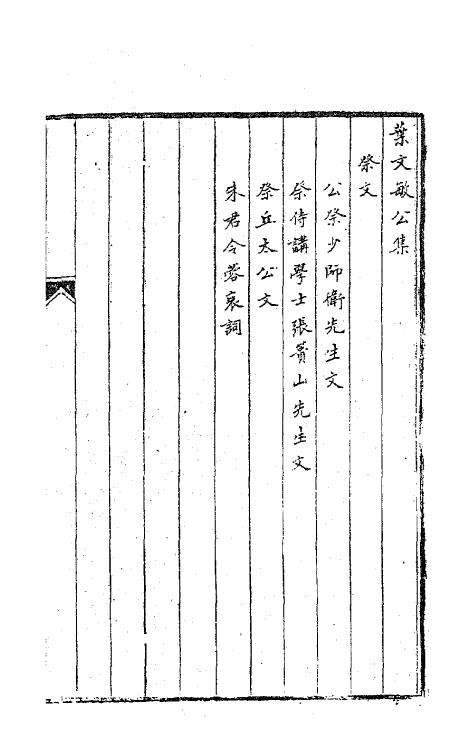 葉文敏公集
祭文
公祭少師衛先生文
祭侍講學士張簣山先生文
祭丘太公文
朱君令蓉哀詞